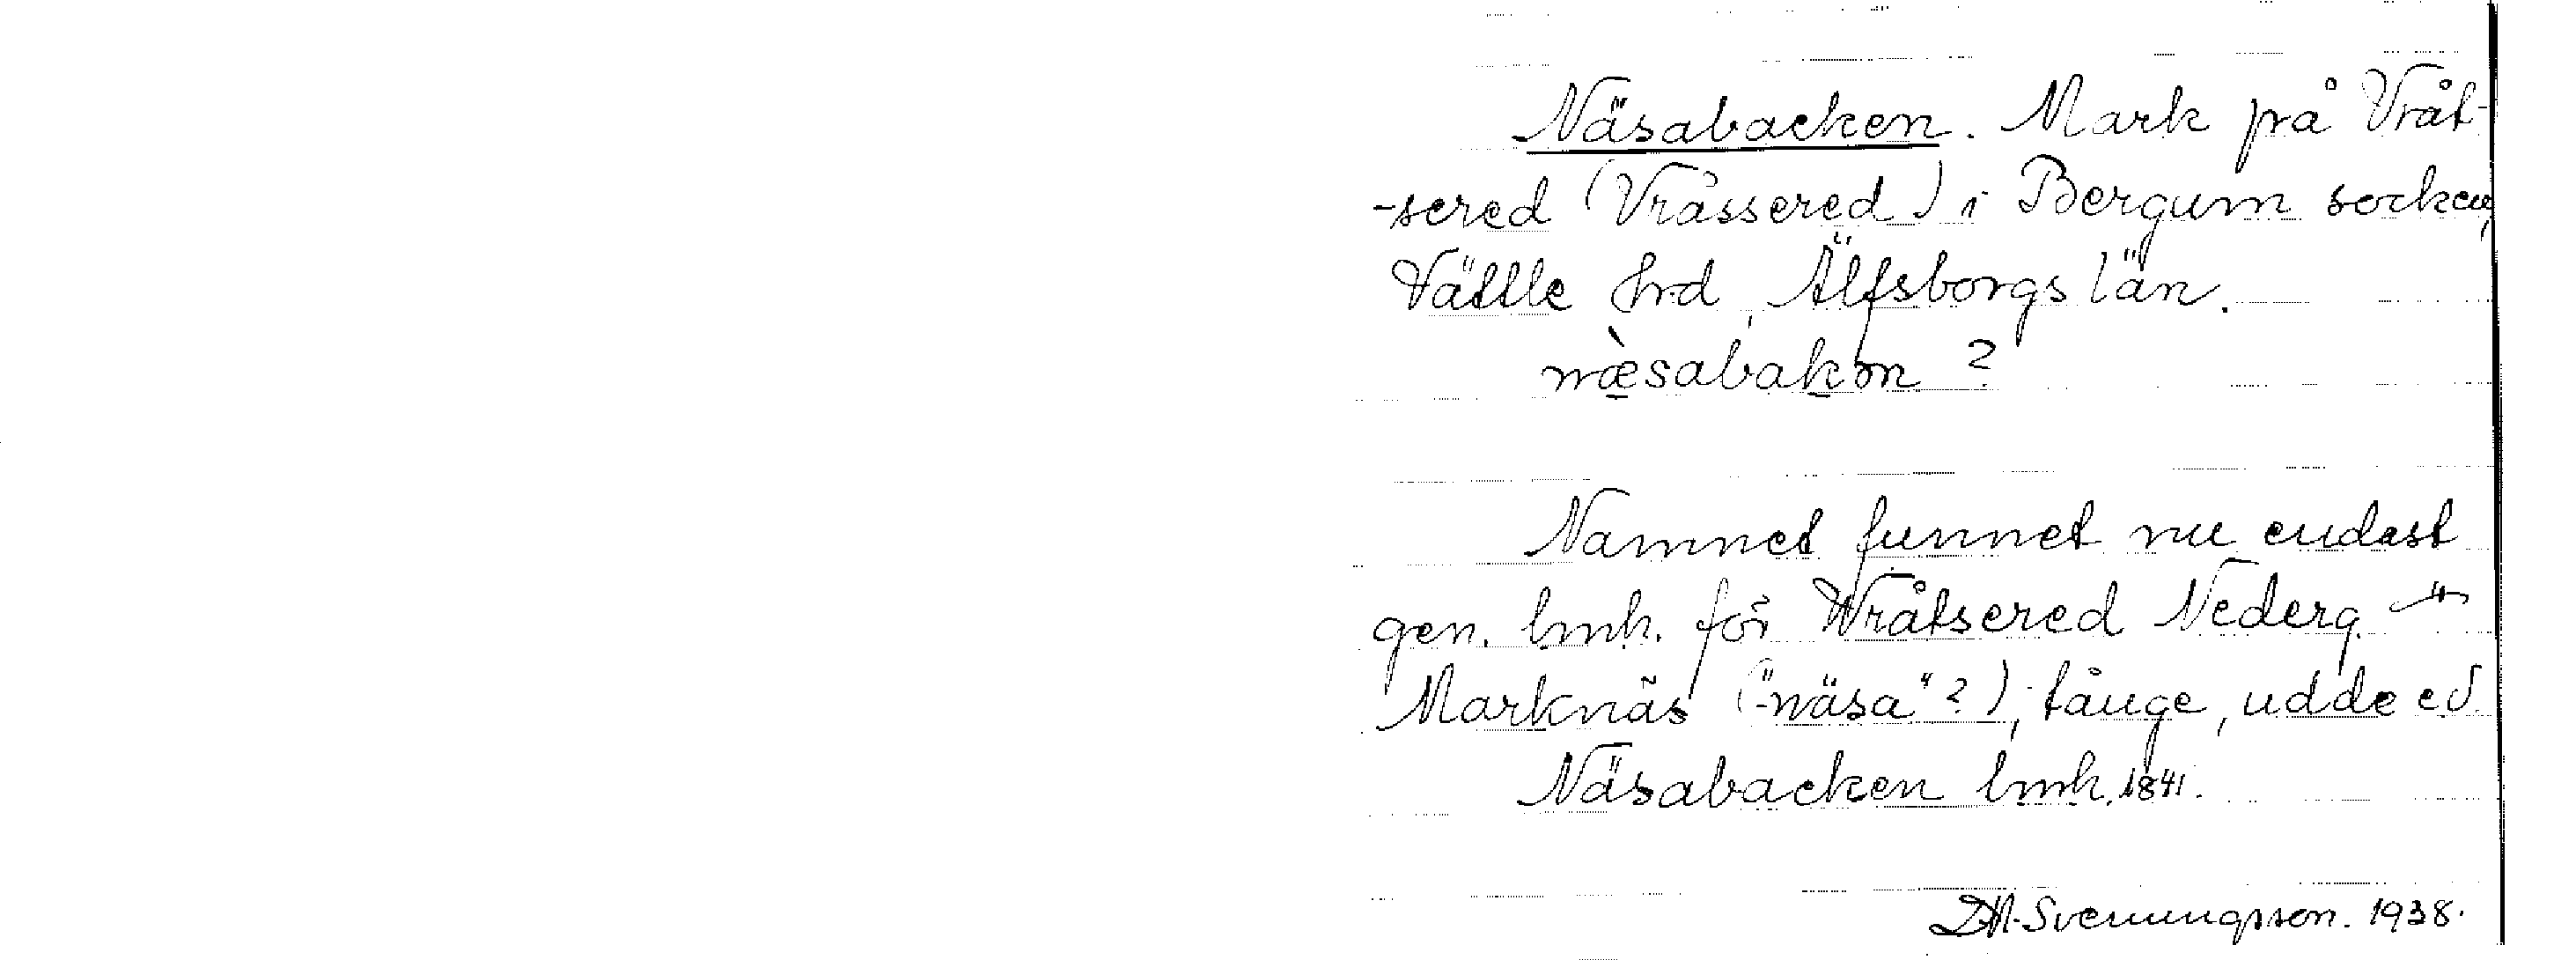 Näsabacken. Mark på Vråt-
-sered (Vråssered) i Bergum socken,
Vättle hrd, Älfsborgs län.
næ̀sabakən ?
Namnet funnet nu endast
gen. lmh. för Wråtsered Nederg.
Marknäs ("-näsa"?), tånge, udde e d.
Näsabacken lmh. 1841.
D.N. Svenungsson. 1938.